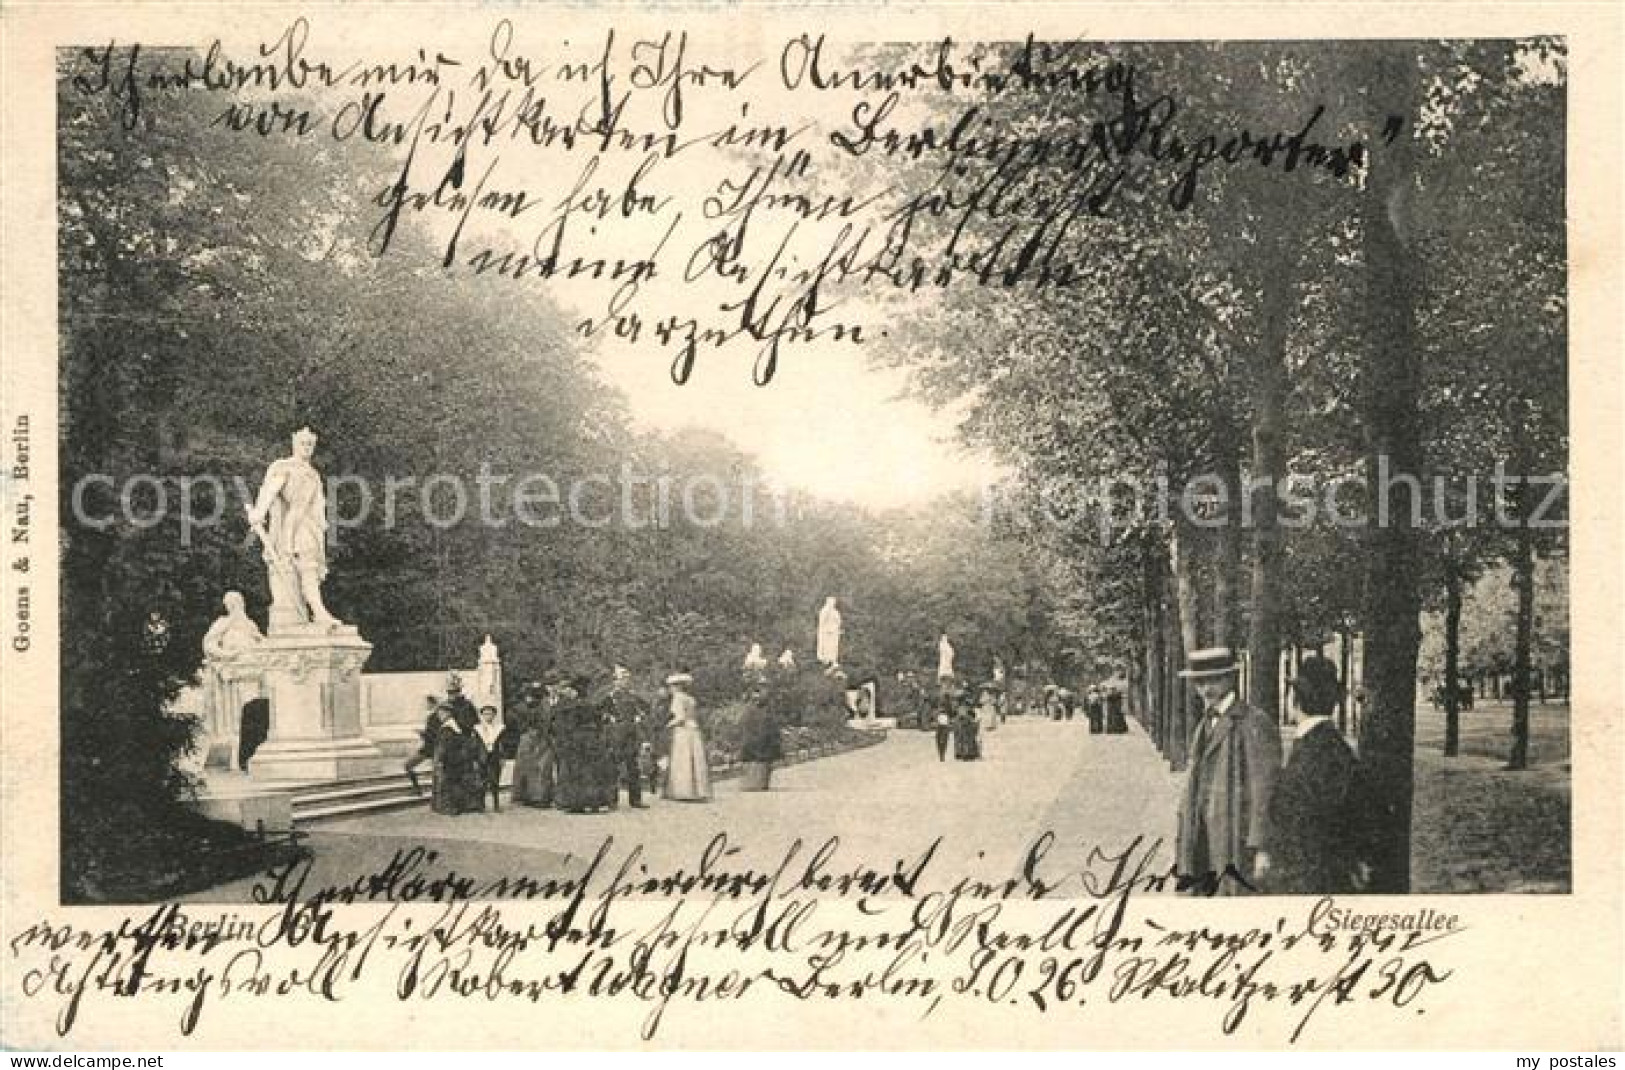 Ich erlaube mir da ich Ihre Anerbietung
von Ansichtkarten im „Berliner Reporter"
gelesen habe, Ihnen höflichst
meine Ansichtkarten
darzuthun.
Goens & Nau, Berlin
copyright protection / Kopierschutz
Ich erkläre mich hierdurch bereit jede Ihrer
Berlin
Siegesallee
werthen Ansichtkarten schnell und Reell zu erwidern
Achtungsvoll Robert Wegner Berlin, S.O. 26. Skalitzerst 30.
my postales